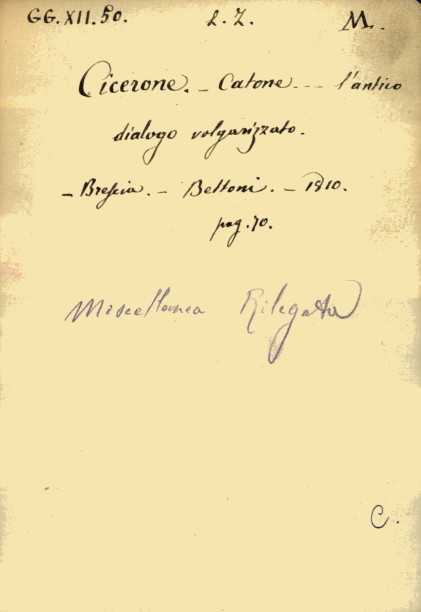 GG.XII.50. L. Z. M.
Cicerone. - Catone - - l'antico
dialogo volgarizzato.
- Brescia. - Bettoni. - 1810.
pag. 70.
Miscellanea Rilegata
C.